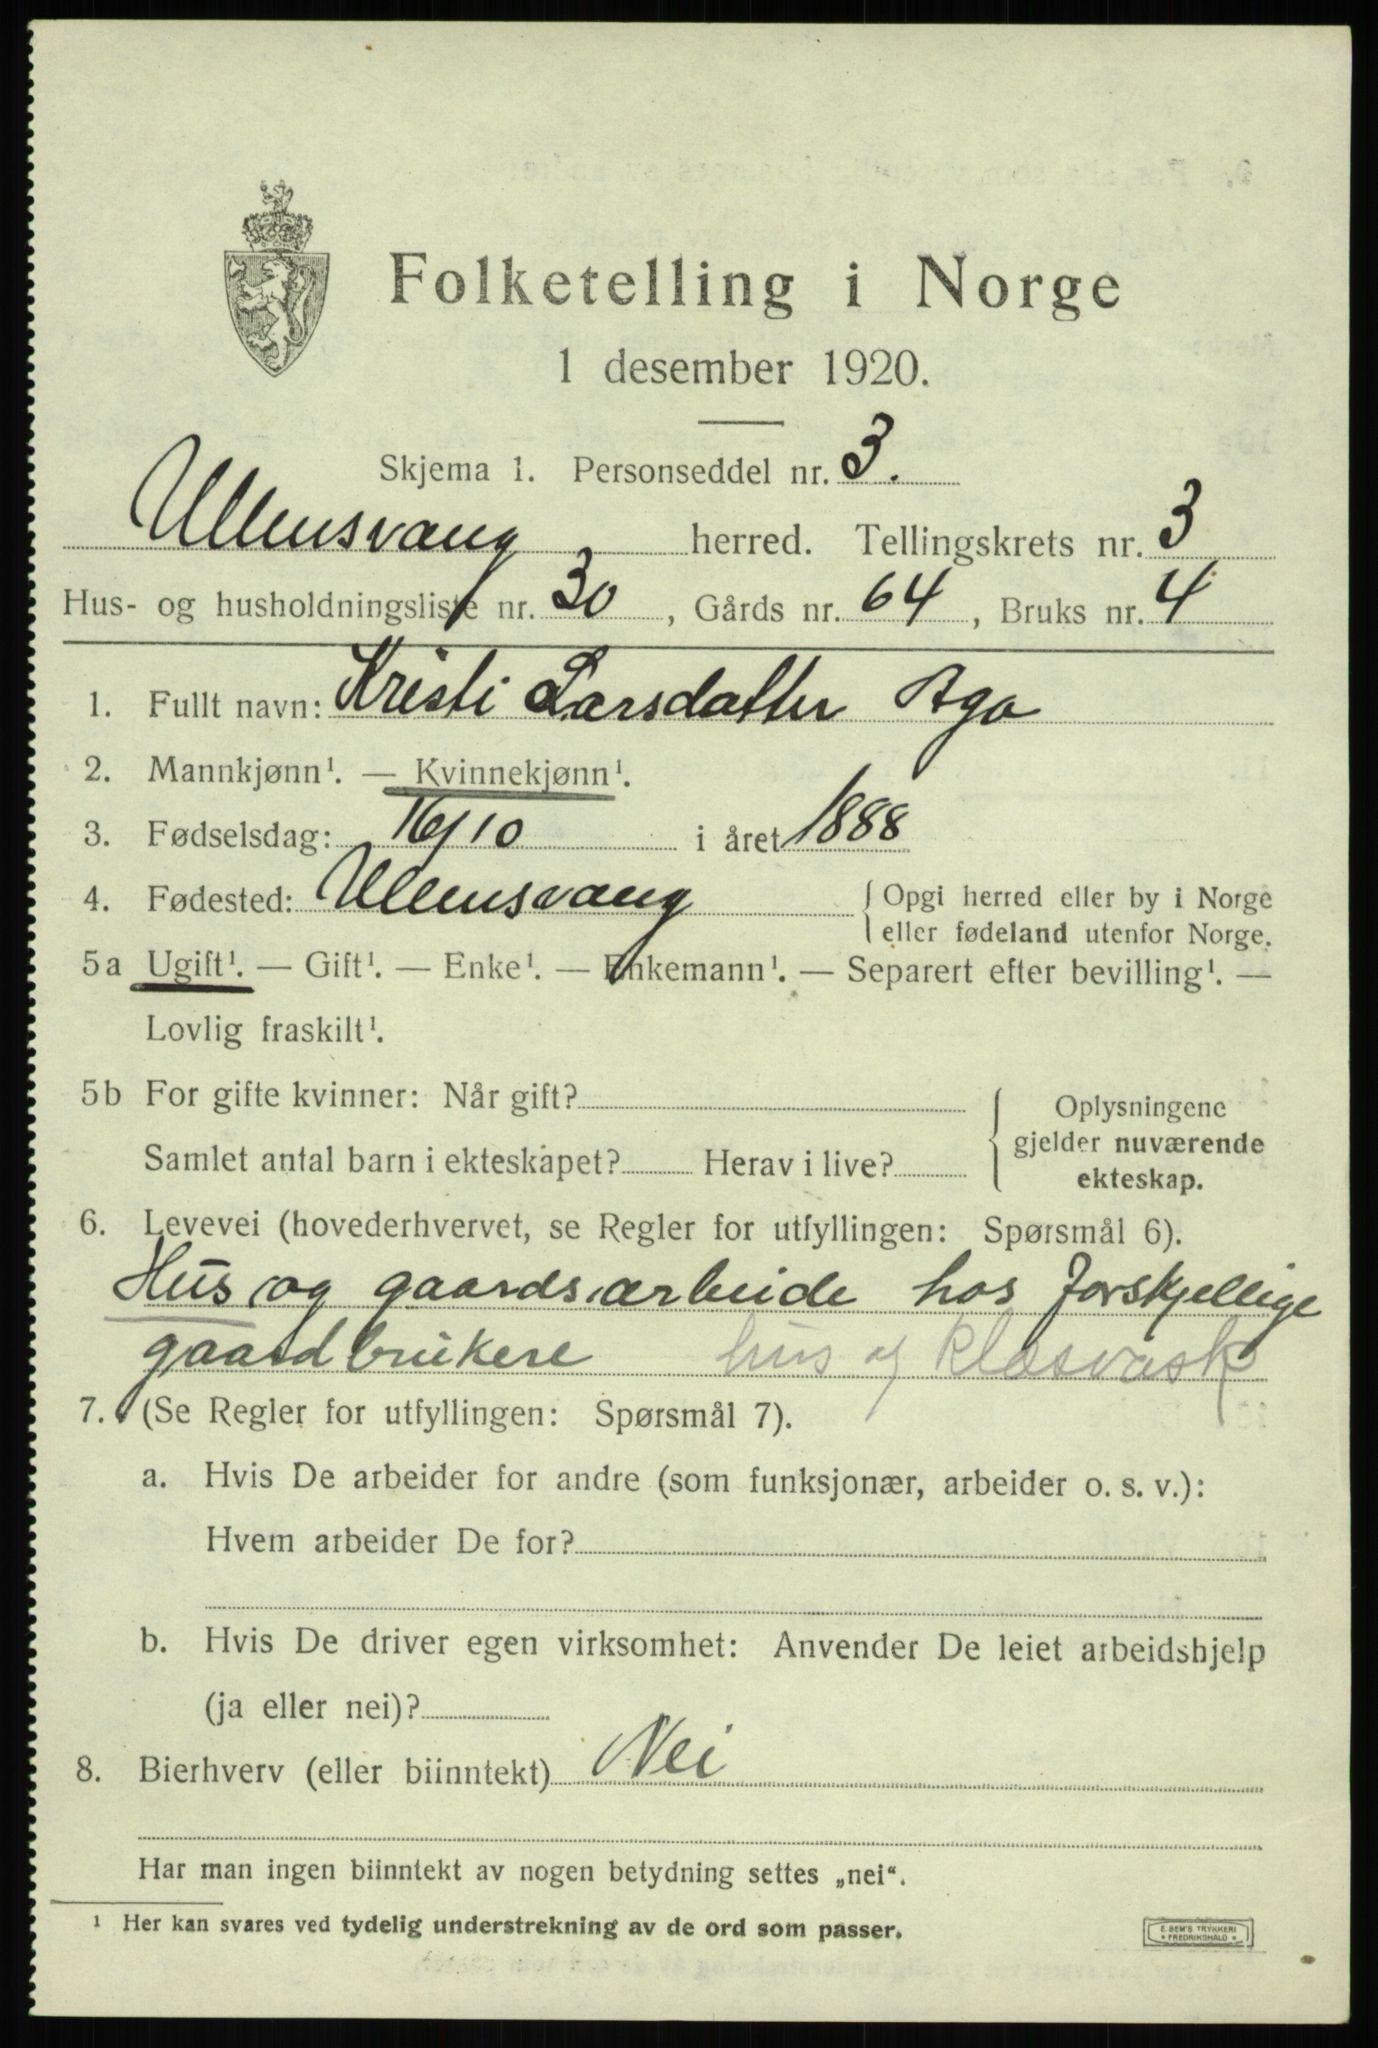 Folketelling i Norge
1 desember 1920.
Skjema 1. Personseddel nr. 3.
Ullensvang herred. Tellingskrets nr. 3
Hus- og husholdningsliste nr. 30, Gårds nr. 64, Bruks nr. 4
1. Fullt navn: Kristi Larsdatter Aga
2. Mannkjønn¹. — Kvinnekjønn¹.
3. Fødselsdag: 16/10 i året 1888
4. Fødested: Ullensvang { Opgi herred eller by i Norge
eller fødeland utenfor Norge.
5a Ugift¹. — Gift¹. — Enke¹. — Enkemann¹. — Separert efter bevilling¹. —
Lovlig fraskilt¹.
5b For gifte kvinner: Når gift?
Samlet antal barn i ekteskapet? Herav i live?
{ Oplysningene
gjelder nuværende
ekteskap.
6. Levevei (hovederhvervet, se Regler for utfyllingen: Spørsmål 6).
Hus og gaardsarbeide hos forskjellige
gaardbrukere hus og klæsvask
7. (Se Regler for utfyllingen: Spørsmål 7).
a. Hvis De arbeider for andre (som funksjonær, arbeider o. s. v.):
Hvem arbeider De for?
b. Hvis De driver egen virksomhet: Anvender De leiet arbeidshjelp
(ja eller nei)?
8. Bierhverv (eller biinntekt) Nei
Har man ingen biinntekt av nogen betydning settes „nei“.
¹ Her kan svares ved tydelig understrekning av de ord som passer.
E. SEM'S TRYKKERI
* FREDRIKSHALD *